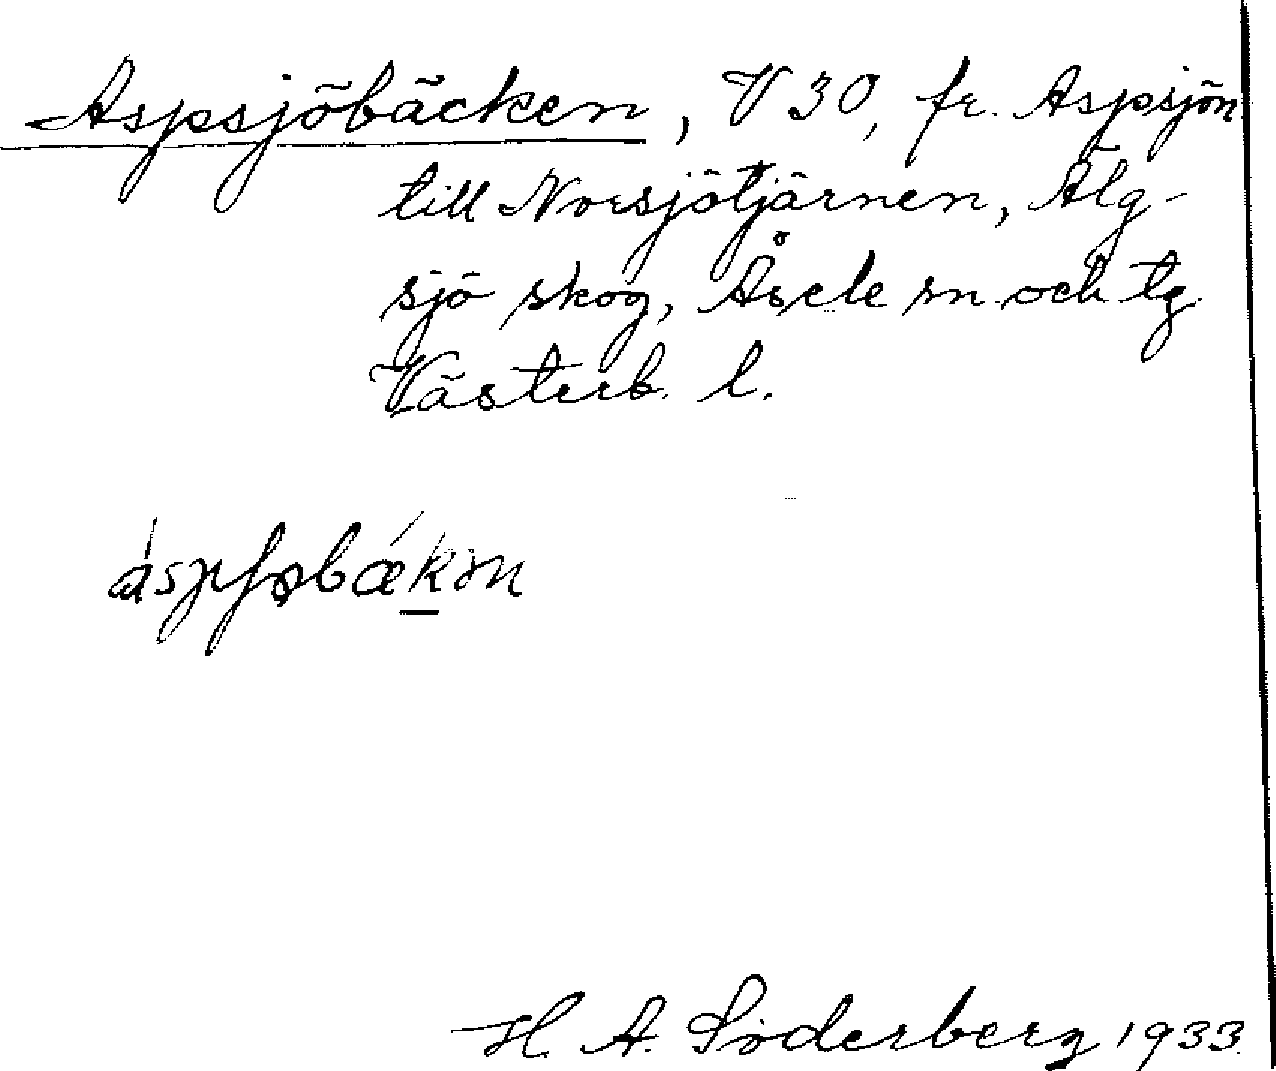 Aspsjöbäcken, V 30, fr. Aspsjön
till Norsjötjärnen, Älg-
sjö skog, Åsele sn och tg
Västerb. l.
áspʃøbǽkən
H. A. Söderberg 1933.